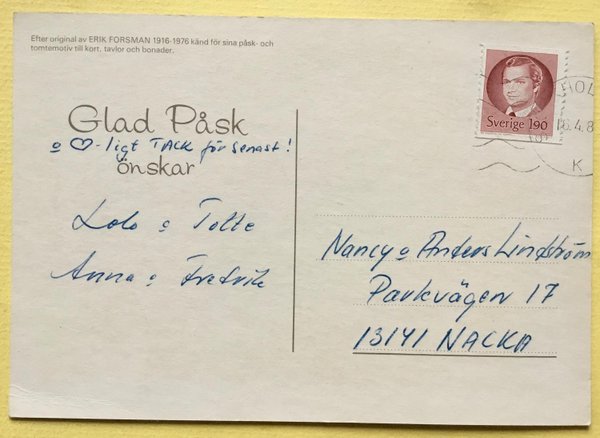 Efter original av ERIK FORSMAN 1916-1976 känd för sina påsk- och
tomtemotiv till kort, tavlor och bonader.
Glad Påsk
o ♡-ligt TACK för senast!
önskar
Lolo o Totte
Anna o Fredrik
Sverige 190
16.4.8
K
Nancy o Anders Lindström
Parkvägen 17
13141 NACKA